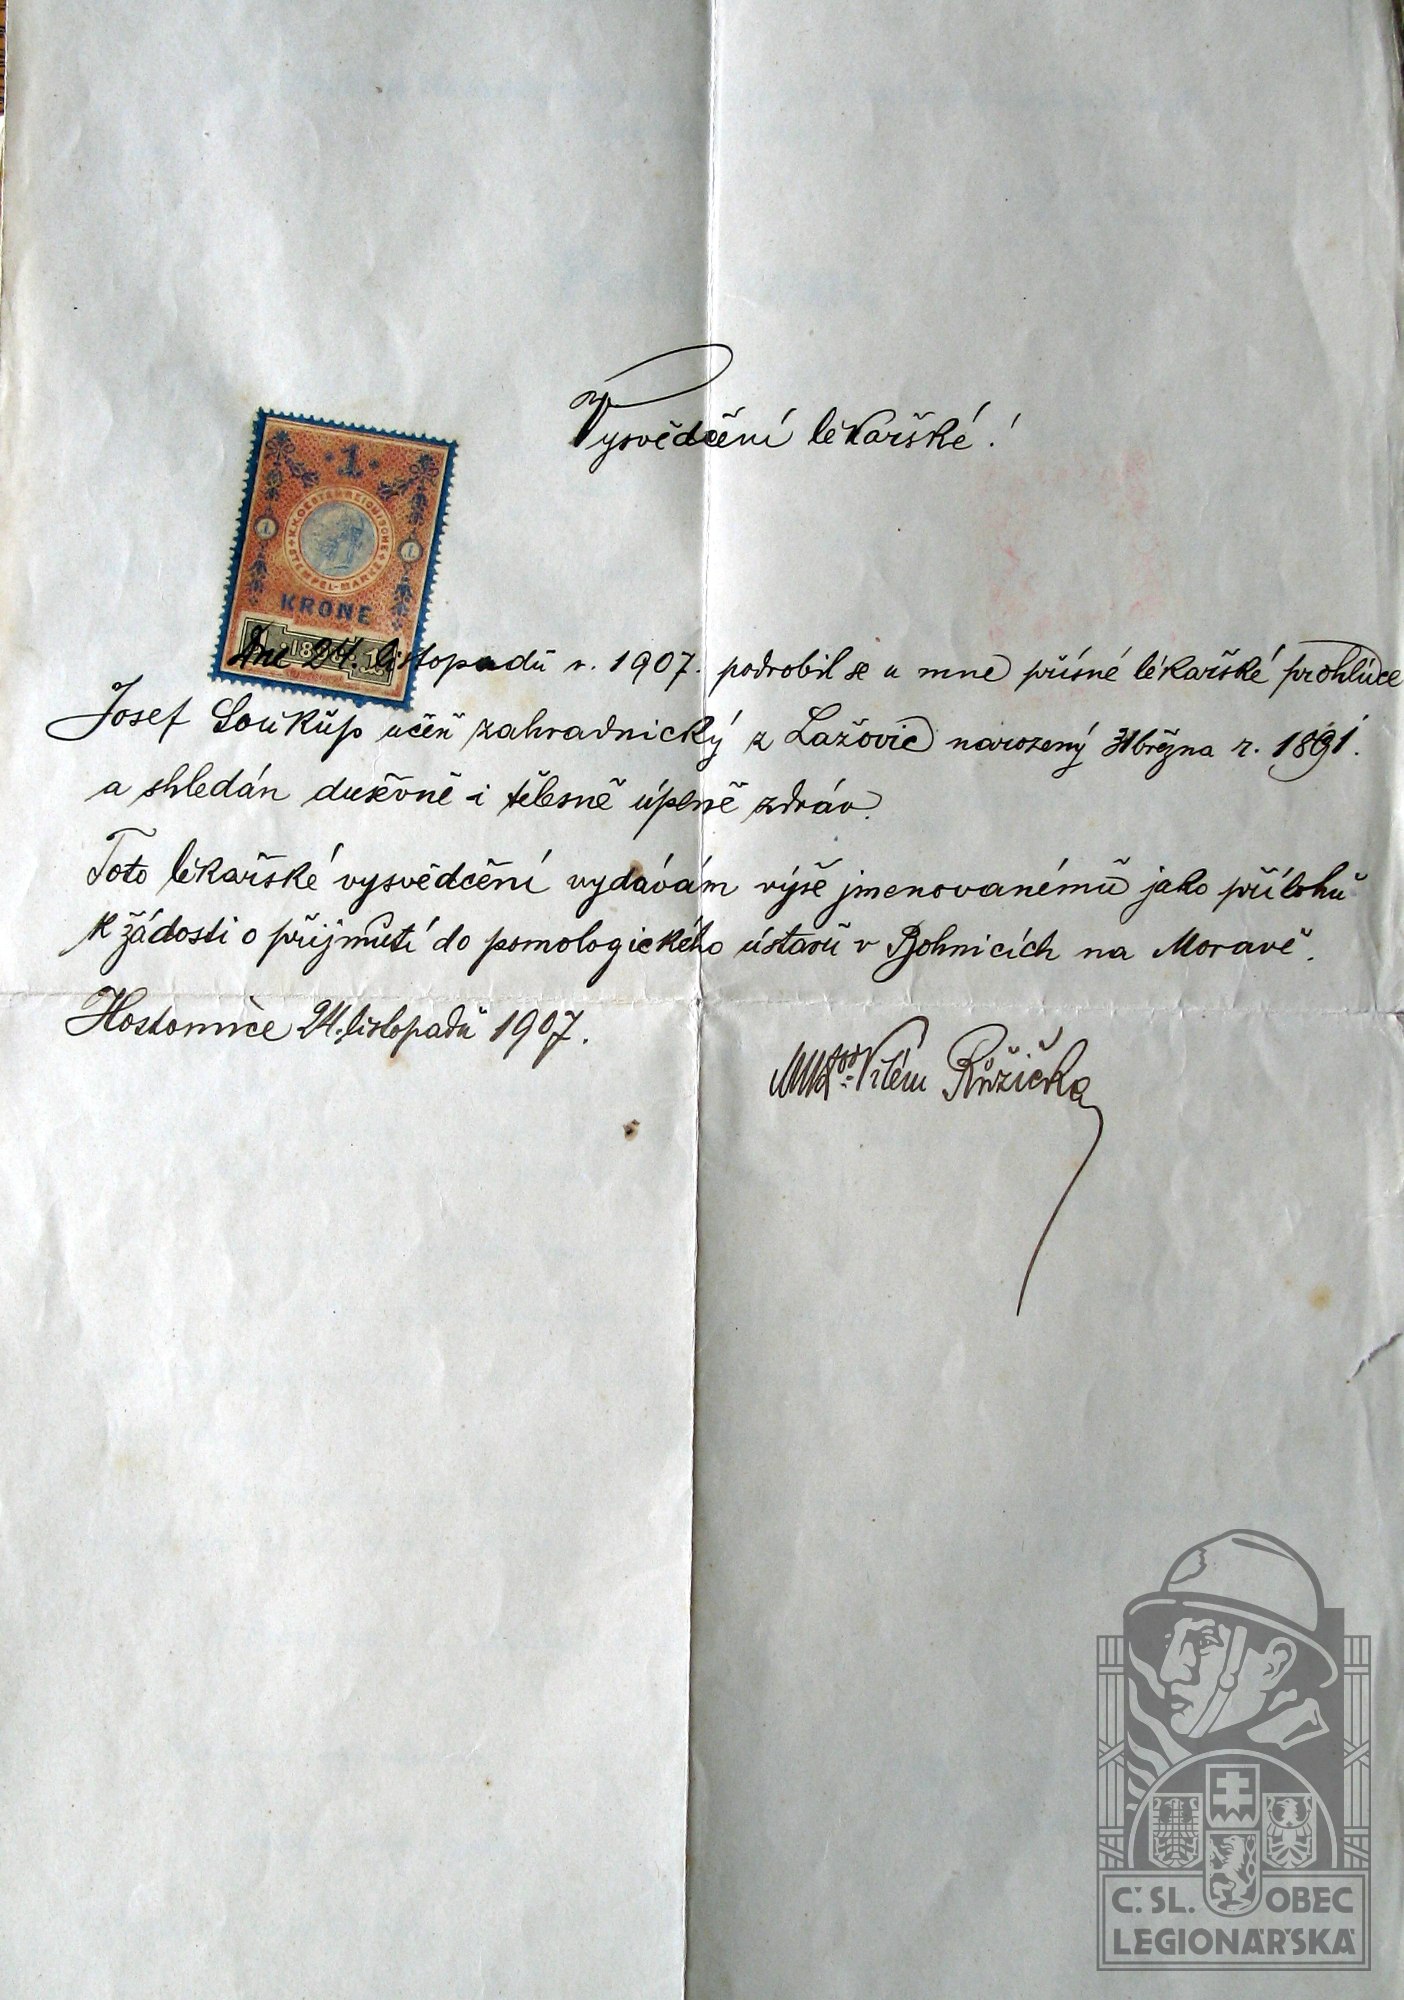 Vysvědčení lékařské!
1
K.K. OESTERREICHISCHE
STEMPEL-MARKE
1 1
KRONE
1898
Dne 24. listopadu r. 1907. podrobil se u mne přísné lékařské prohlídce
Josef Soukup učeň zahradnický z Lažovic narozený 31 března r. 1891.
a shledán duševně i tělesně úplně zdráv.
Toto lékařské vysvědčení vydávám výše jmenovanému jako přílohu
k žádosti o přijmutí do pomologického ústavu v Bohnicích na Moravě.
Hostomice 24. listopadu 1907.
MUDr. Vilém Růžička
Č. SL. OBEC
LEGIONÁŘSKÁ